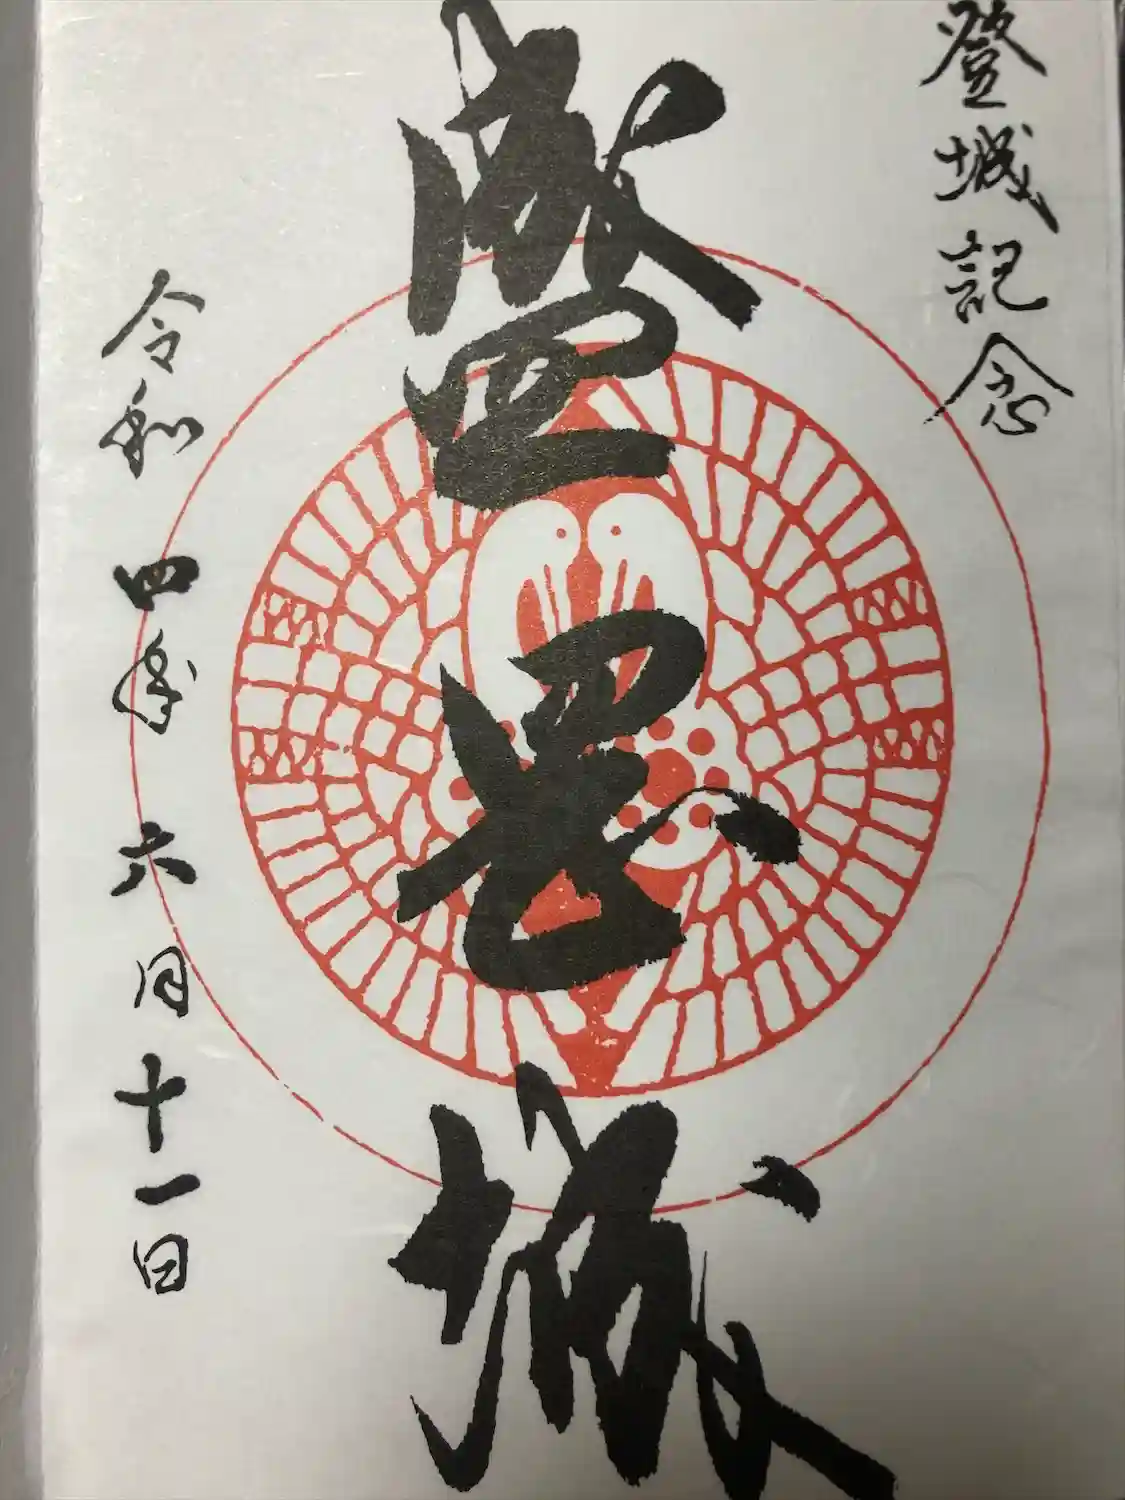 登城記念
盛岡城
令和四年六月十一日